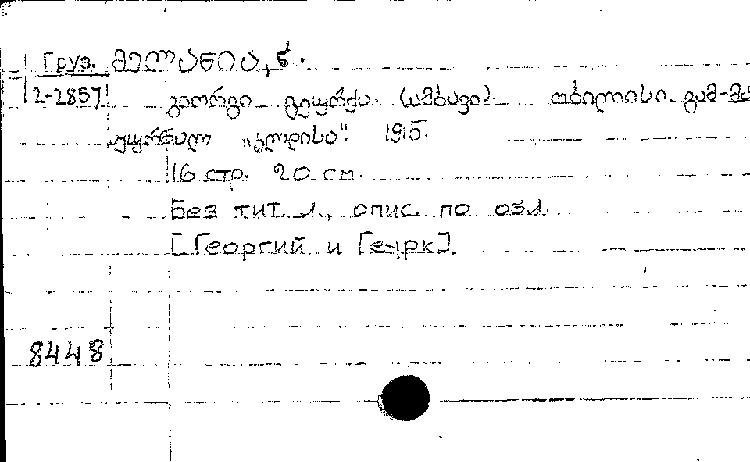 Груз. მელანია, ნ.
2-2857 გიორგი გეურქა (ამბავი) თბილისი. გამ-მა
ჟურნალ „კლდისა". 1915.
16 стр. 20 см.
Без тит. л., опис. по огл.
[Георгий и Геурк].
8448